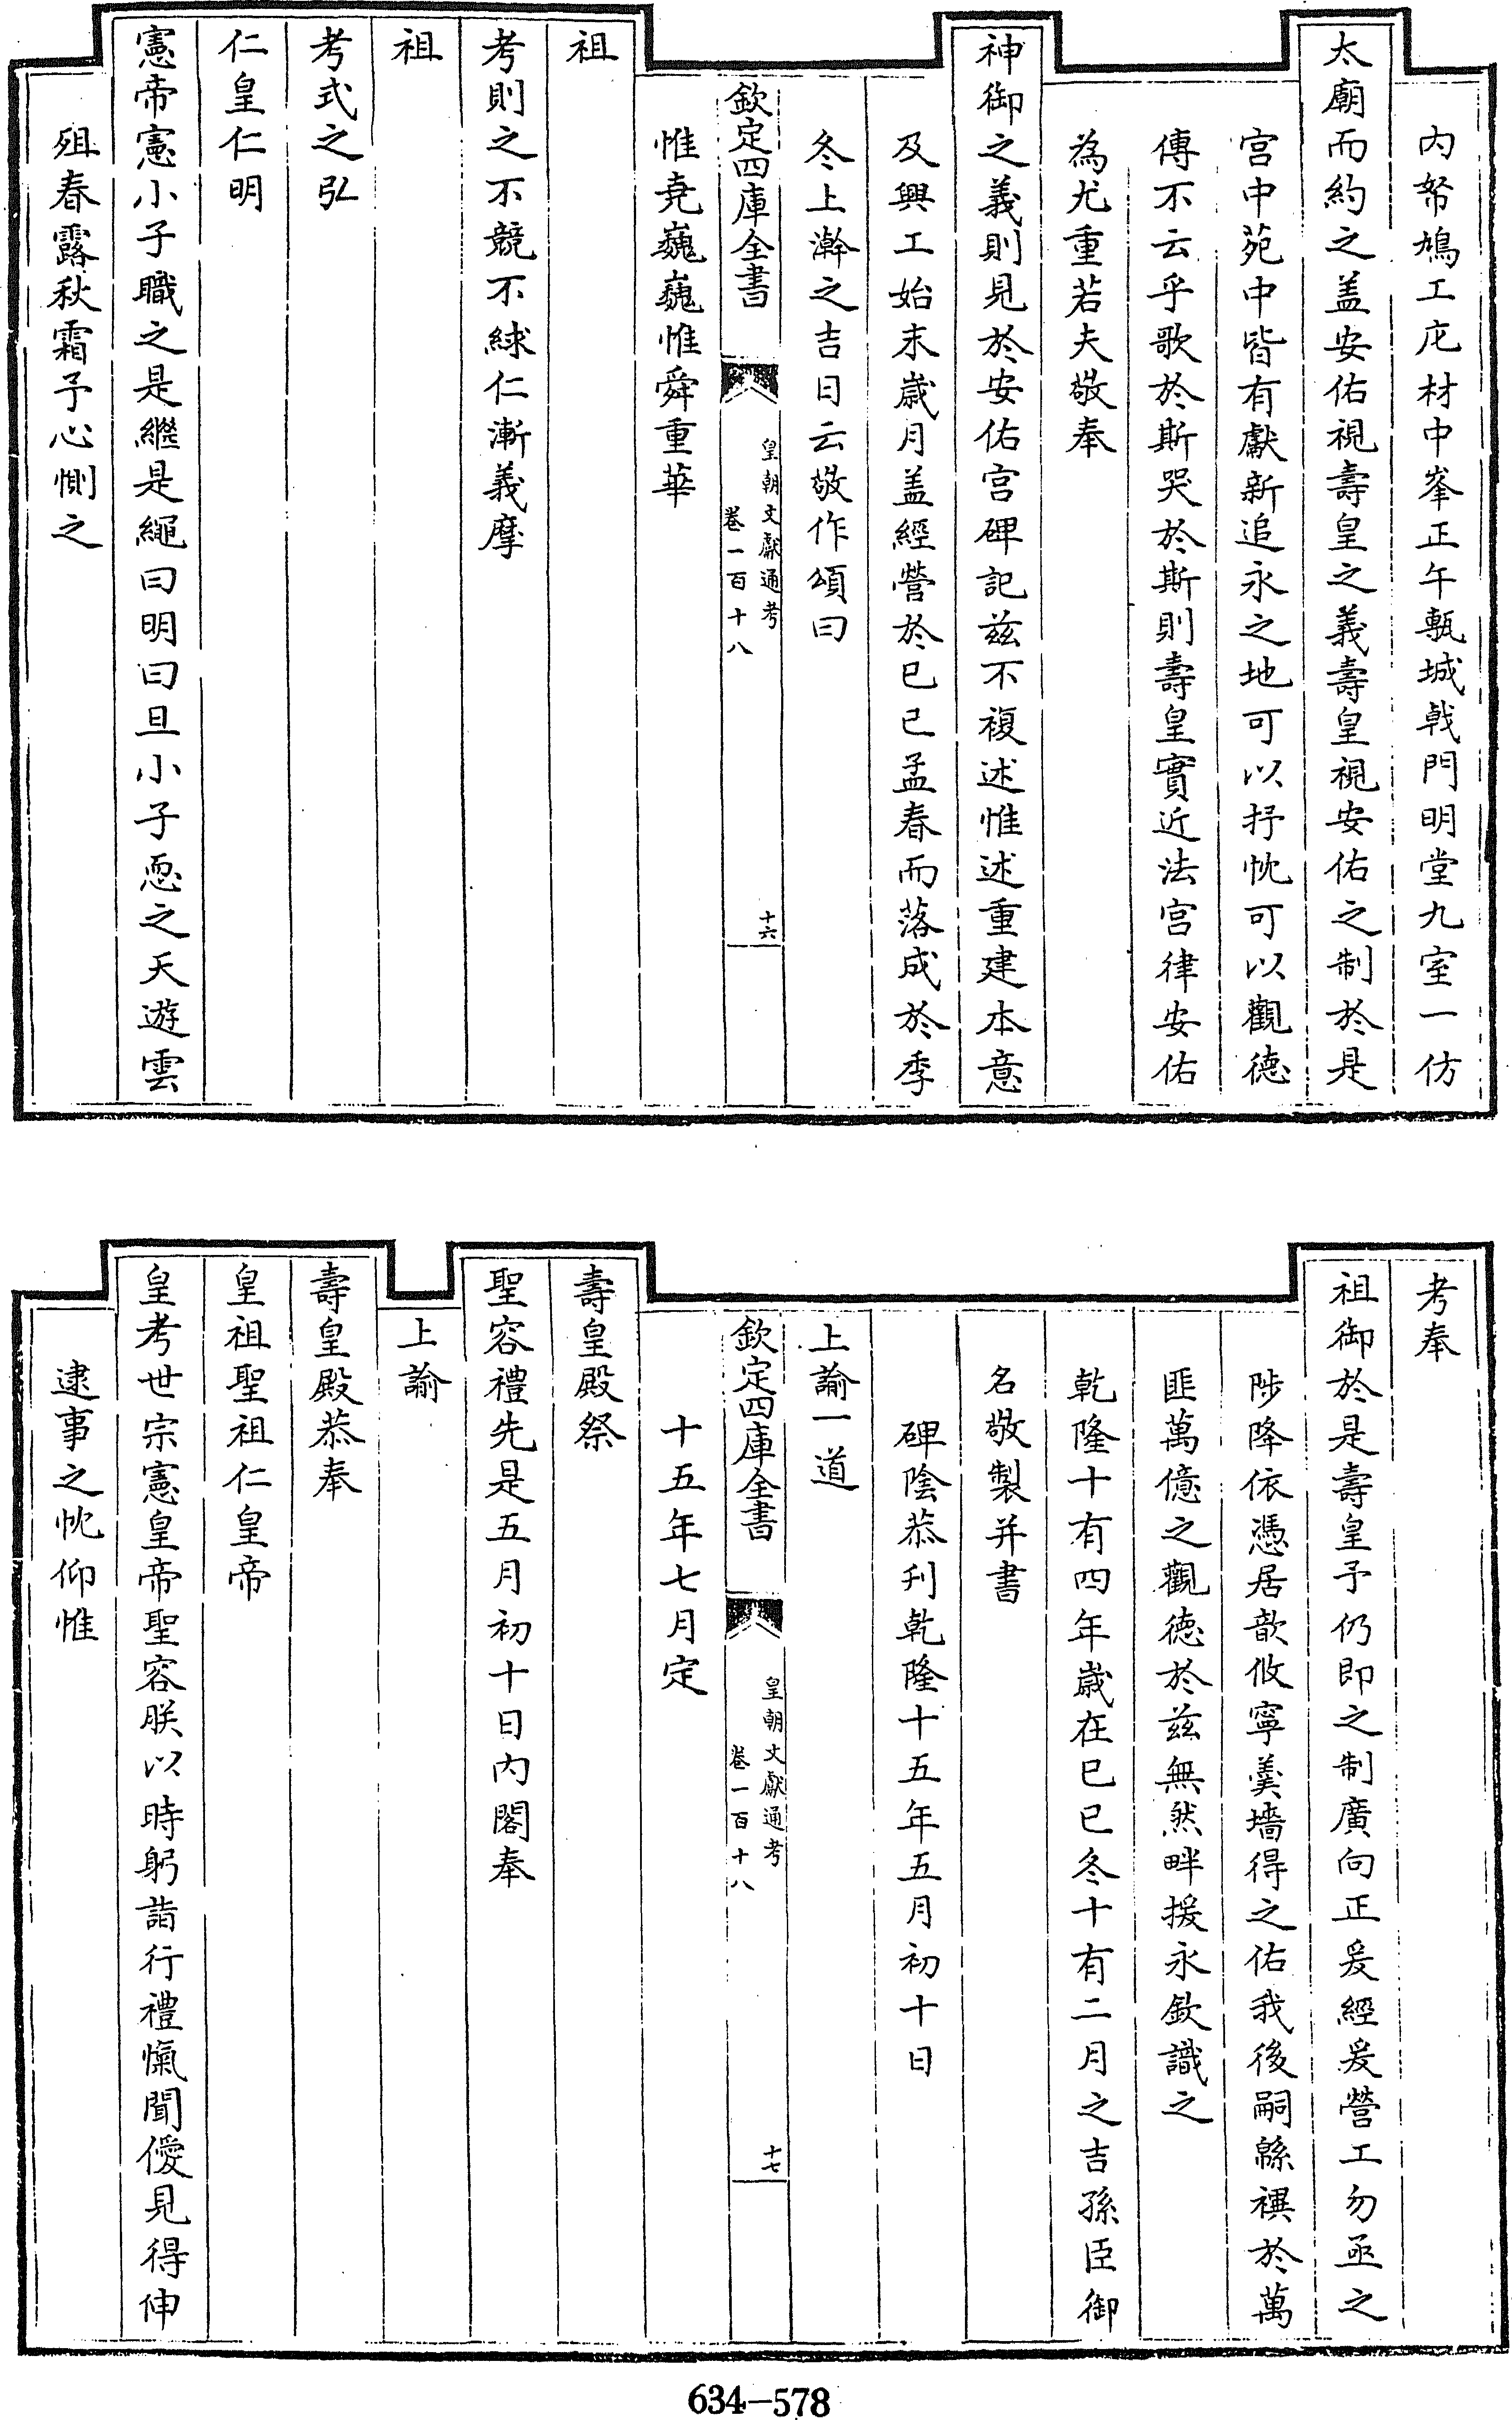 內帑鳩工庀材中峯正午甎城戟門明堂九室一仿
太廟而約之盖安佑視壽皇之義壽皇視安佑之制於是
宮中苑中皆有獻新追永之地可以抒忱可以觀德
傳不云乎歌於斯哭於斯則壽皇實近法宮律安佑
為尤重若夫敬奉
神御之義則見於安佑宮碑記兹不複述惟述重建本意
及興工始末歲月盖經營於己巳孟春而落成於季
冬上澣之吉日云敬作頌曰
欽定四庫全書
皇朝文獻通考
卷一百十八
十六
惟堯巍巍惟舜重華
祖
考則之不競不絿仁漸義摩
祖
考式之弘
仁皇仁明
憲帝憲小子職之是繼是繩曰明曰旦小子惡之天遊雲
殂春露秋霜予心惻之
考奉
祖御於是壽皇予仍即之制廣向正爰經爰營工勿亟之
陟降依憑居歆攸寧羹墻得之佑我後嗣緜禩於萬
匪萬億之觀德於兹無然畔援永欽識之
乾隆十有四年歲在己巳冬十有二月之吉孫臣御
名敬製并書
碑陰恭刋乾隆十五年五月初十日
上諭一道
欽定四庫全書
皇朝文獻通考
卷一百十八
十七
十五年七月定
壽皇殿祭
聖容禮先是五月初十日內閣奉
上諭
壽皇殿恭奉
皇祖聖祖仁皇帝
皇考世宗憲皇帝聖容朕以時躬詣行禮愾聞僾見得伸
逮事之忱仰惟
634-578